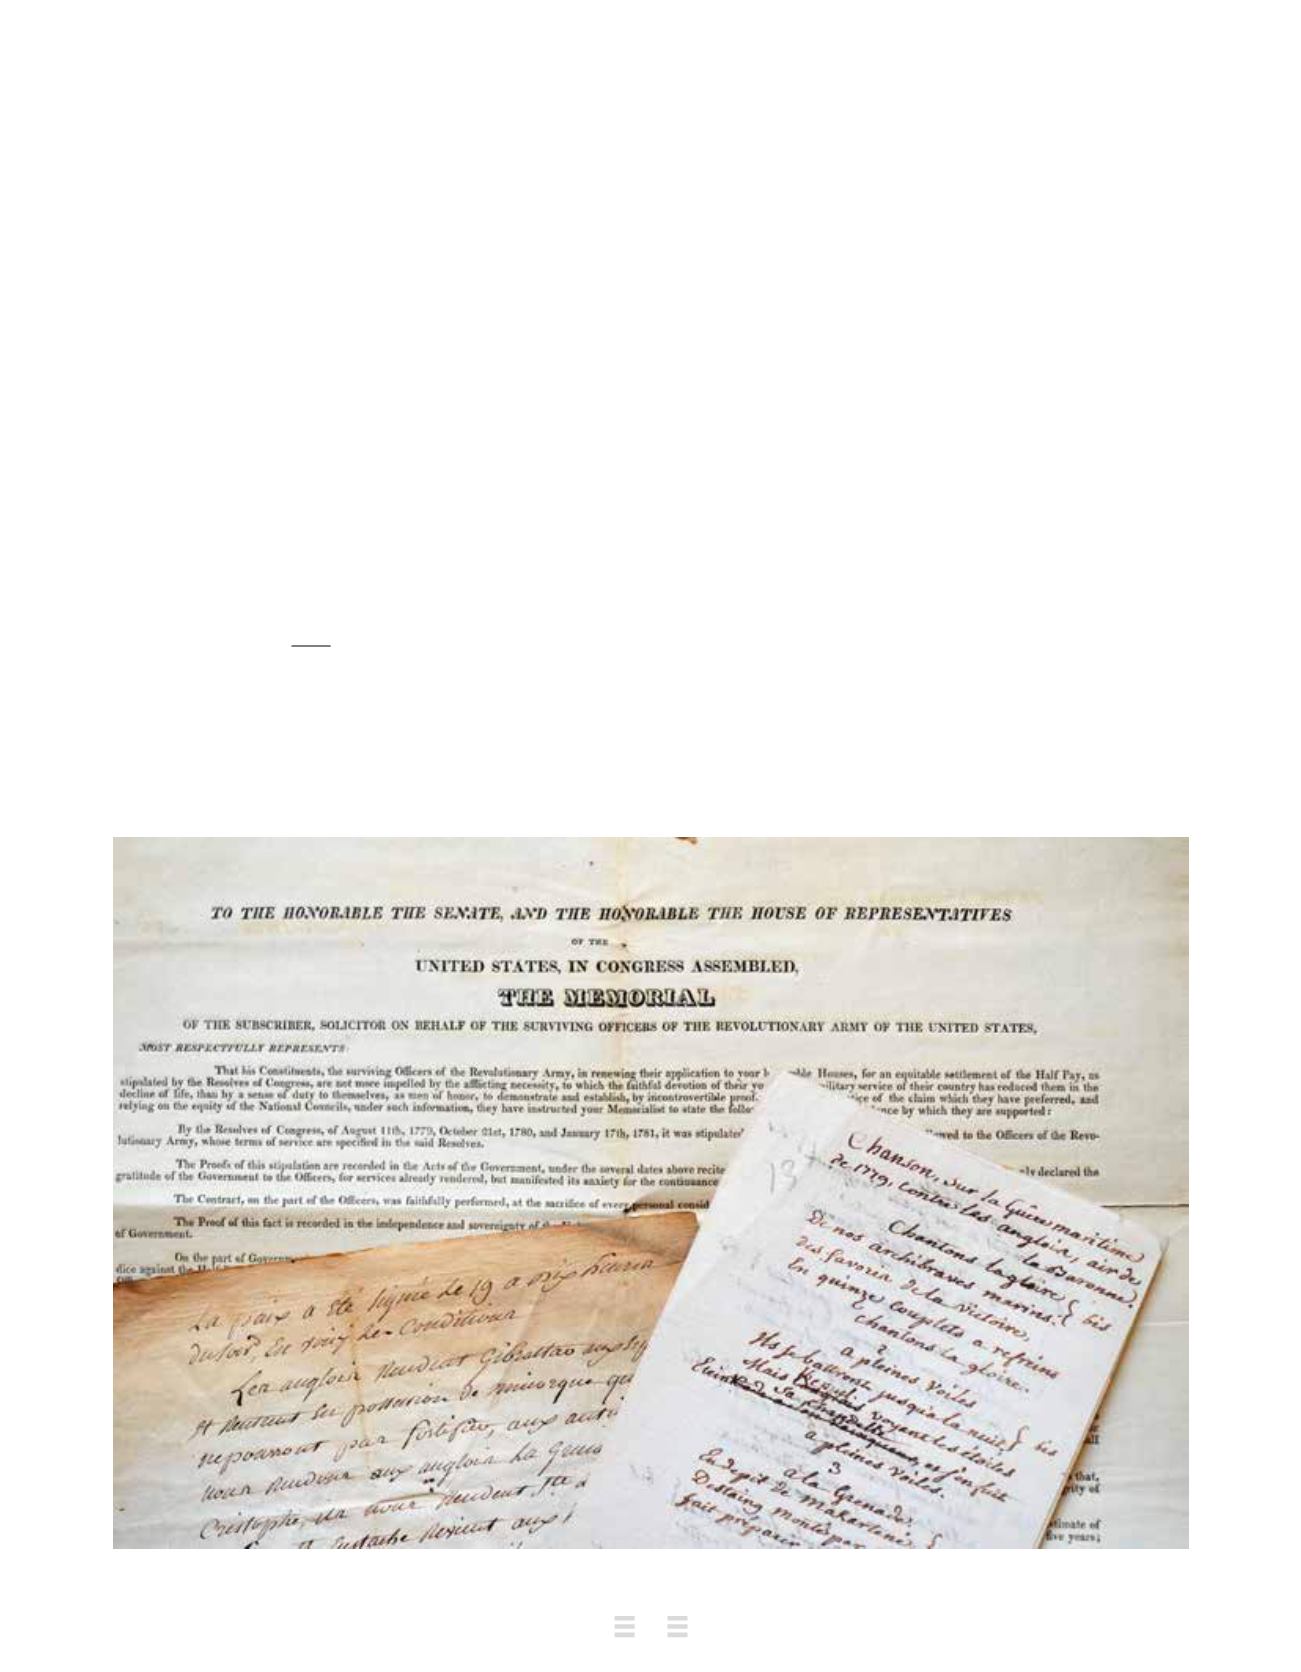 TO THE HONORABLE THE SENATE, AND THE HONORABLE THE HOUSE OF REPRESENTATIVES
OF THE
UNITED STATES, IN CONGRESS ASSEMBLED,
THE MEMORIAL
OF THE SUBSCRIBER, SOLICITOR ON BEHALF OF THE SURVIVING OFFICERS OF THE REVOLUTIONARY ARMY OF THE UNITED STATES,
MOST RESPECTFULLY REPRESENTS:
That his Constituents, the surviving Officers of the Revolutionary Army, in renewing their application to your h ble Houses, for an equitable settlement of the Half Pay, as
stipulated by the Resolves of Congress, are not more impelled by the afflicting necessity, to which the faithful devotion of their yo military service of their country has reduced them in the
decline of life, than by a sense of duty to themselves, as men of honor, to demonstrate and establish, by incontrovertible proof, tice of the claim which they have preferred, and
relying on the equity of the National Councils, under such information, they have instructed your Memorialist to state the follo nce by which they are supported:
By the Resolves of Congress, of August 11th, 1779, October 21st, 1780, and January 17th, 1781, it was stipulated owed to the Officers of the Revo-
lutionary Army, whose terms of service are specified in the said Resolves.
The Proofs of this stipulation are recorded in the Acts of the Government, under the several dates above recite ly declared the
gratitude of the Government to the Officers, for services already rendered, but manifested its anxiety for the continuance
The Contract, on the part of the Officers, was faithfully performed, at the sacrifice of every personal consid
The Proof of this fact is recorded in the independence and sovereignty of
of Government.
On the part of Governm
dice against the
that,
rity of
timate of
five years;
La paix a été signée le 19 a six heures
du soir, en voici les Conditions
Les anglois rendent Gibraltar aux
et rentrent en possession de minorque qu
ne pourront pas fortifier, aux
nous rendons aux anglois La Gren
Cristophe, ils nous rendent Ste
St Eustache revient aux
13
Chanson, sur la Guerre maritime
de 1779, contre les anglois, air de
la Baronne.
Chantons la gloire
De nos archibraves marins. bis
des favoris de la victoire,
En quinze couplets a refreins
Chantons la gloire.
2
a pleines voiles
Ils se battront jusqu'a la nuit, bis
Mais voyant les étoiles
a pleines voiles.
3
à la Grenade,
En depit de Makartenei,
Destaing monté par
fait préparer